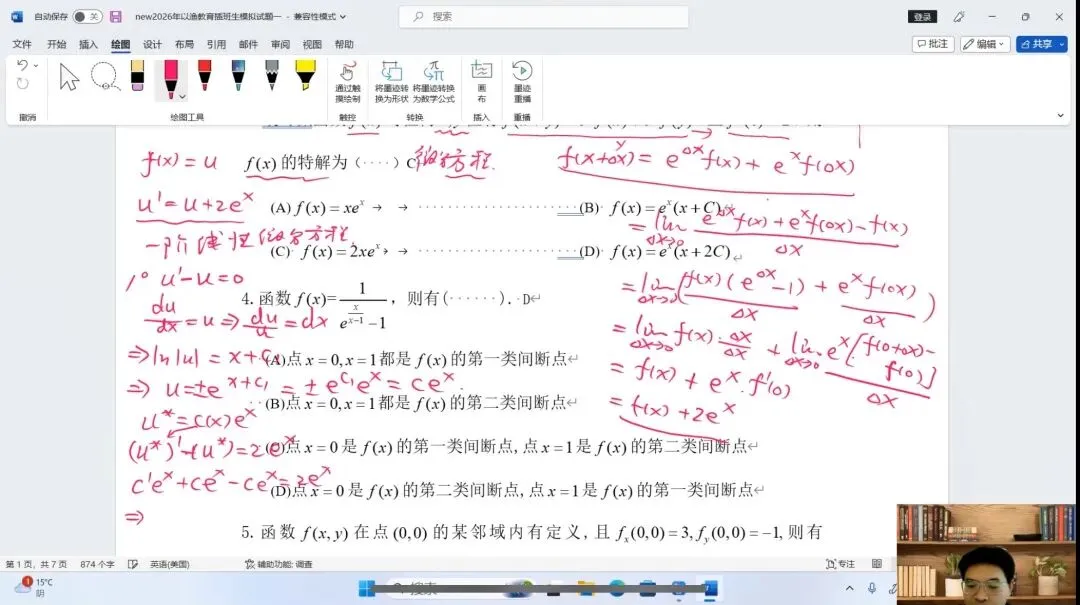 自动保存 关 new2026年以渔教育插班生模拟试题一 - 兼容性模式 搜索 登录
文件 开始 插入 绘图 设计 布局 引用 邮件 审阅 视图 帮助 批注 编辑 共享
通过触摸绘制 将墨迹转换为形状 将墨迹转换为数学公式 画布 墨迹重播
撤消 绘图工具 触控 转换 插入 重播
f(x) = u
f(x) 的特解为（····）C 微分方程.
f(x+Δx) = e^Δx f(x) + e^x f(Δx)
u' = u + 2e^x
(A) f(x) = xe^x → → (B) f(x) = e^x(x + C)
= lim Δx→0 (e^Δx f(x) + e^x f(Δx) - f(x)) / Δx
一阶线性微分方程.
(C) f(x) = 2xe^x → (D) f(x) = e^x(x + 2C)
1° u' - u = 0
= lim Δx→0 (f(x)(e^Δx - 1) / Δx + e^x f(Δx) / Δx)
4. 函数 f(x) = 1 / (e^(x/(x-1)) - 1) ，则有(······). D
du/dx = u ⇒ du/u = dx
= lim Δx→0 f(x)·Δx/Δx + lim Δx→0 e^x[f(0+Δx) - f(0)] / Δx
⇒ ln|u| = x + C₁
(A)点 x = 0, x = 1 都是 f(x) 的第一类间断点
= f(x) + e^x·f'(0)
⇒ u = ±e^(x+C₁) = ±e^C₁ e^x = Ce^x
(B)点 x = 0, x = 1 都是 f(x) 的第二类间断点
= f(x) + 2e^x
u* = C(x)e^x
(u*)' - (u*) = 2e^x
(C)点 x = 0 是 f(x) 的第一类间断点, 点 x = 1 是 f(x) 的第二类间断点
C'e^x + Ce^x - Ce^x = 2e^x
(D)点 x = 0 是 f(x) 的第二类间断点, 点 x = 1 是 f(x) 的第一类间断点
⇒
5. 函数 f(x, y) 在点 (0,0) 的某邻域内有定义, 且 f_x(0,0) = 3, f_y(0,0) = -1, 则有
第 1 页, 共 7 页 874 个字 英语(美国) 辅助功能: 调查 专注
1 15°C
阴
搜索